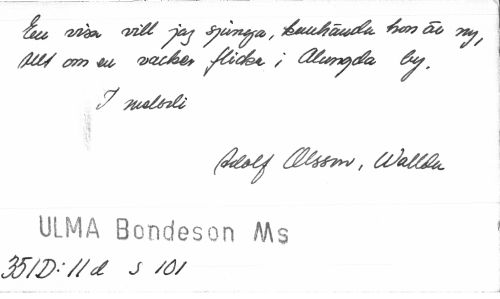 En visa vill jag sjunga, kanhända hon är ny,
Allt om en vacker flicka i Alungda by.
I melodi
Adolf Olsson, Wallda
ULMA Bondeson Ms
351D: 11 d s 101